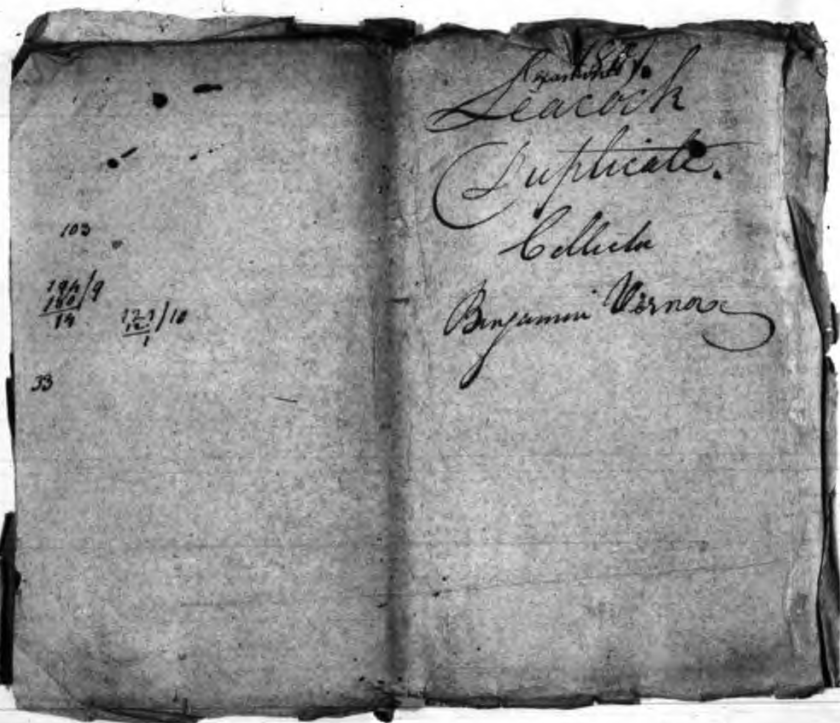 103
194/9
180
14
121/10
12
1
33
Leacock
Duplicate.
Collector
Benjamin Vernon